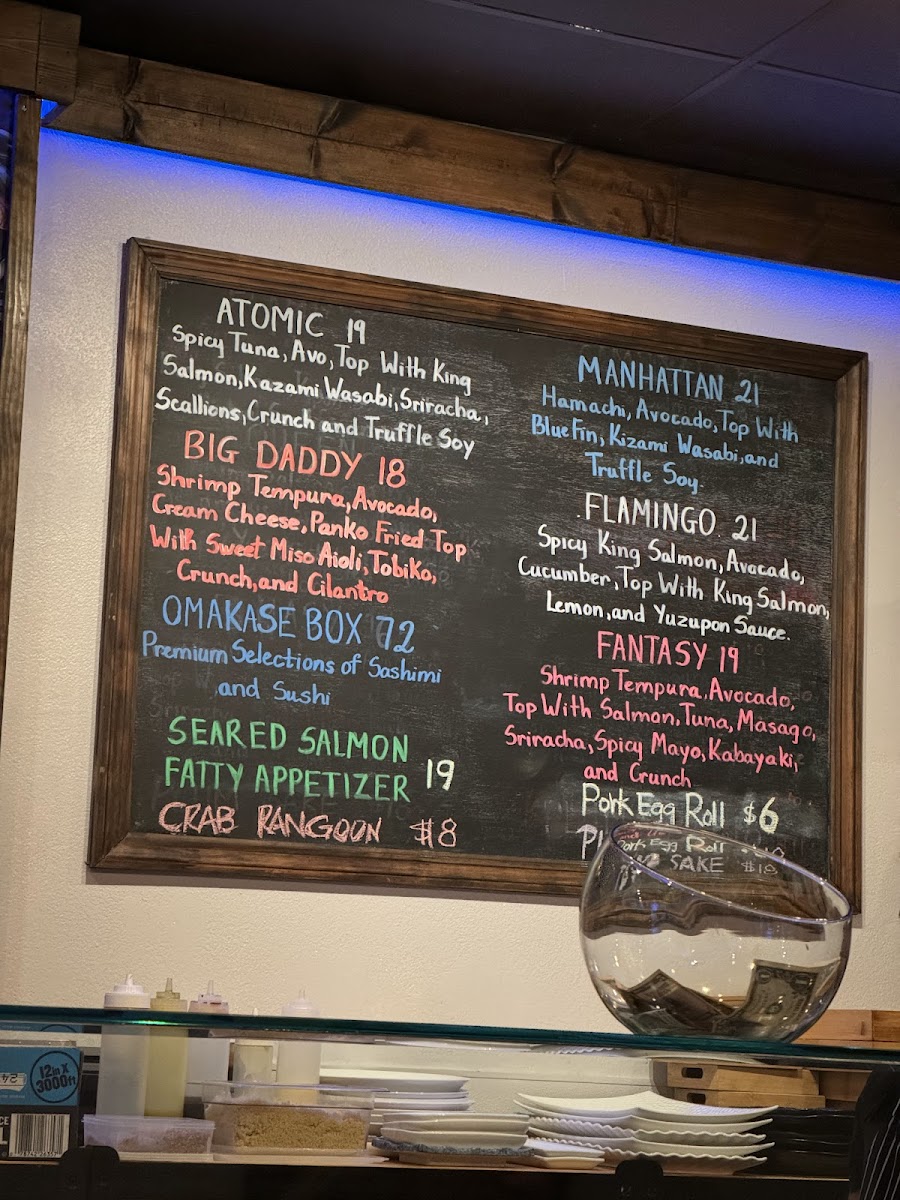 ATOMIC 19
Spicy Tuna, Avo, Top With King
Salmon, Kazami Wasabi, Sriracha,
Scallions, Crunch and Truffle Soy
BIG DADDY 18
Shrimp Tempura, Avocado,
Cream Cheese, Panko Fried Top
With Sweet Miso Aioli, Tobiko,
Crunch, and Cilantro
OMAKASE BOX 72
Premium Selections of Sashimi
and Sushi
SEARED SALMON
FATTY APPETIZER 19
CRAB RANGOON $8
MANHATTAN 21
Hamachi, Avocado, Top With
BlueFin, Kizami Wasabi, and
Truffle Soy.
FLAMINGO 21
Spicy King Salmon, Avocado,
Cucumber, Top With King Salmon,
Lemon, and Yuzupon Sauce.
FANTASY 19
Shrimp Tempura, Avocado,
Top With Salmon, Tuna, Masago,
Sriracha, Spicy Mayo, Kabayaki,
and Crunch
Pork Egg Roll $6
Pork Egg Roll
SAKE $18
12in X
3000ft